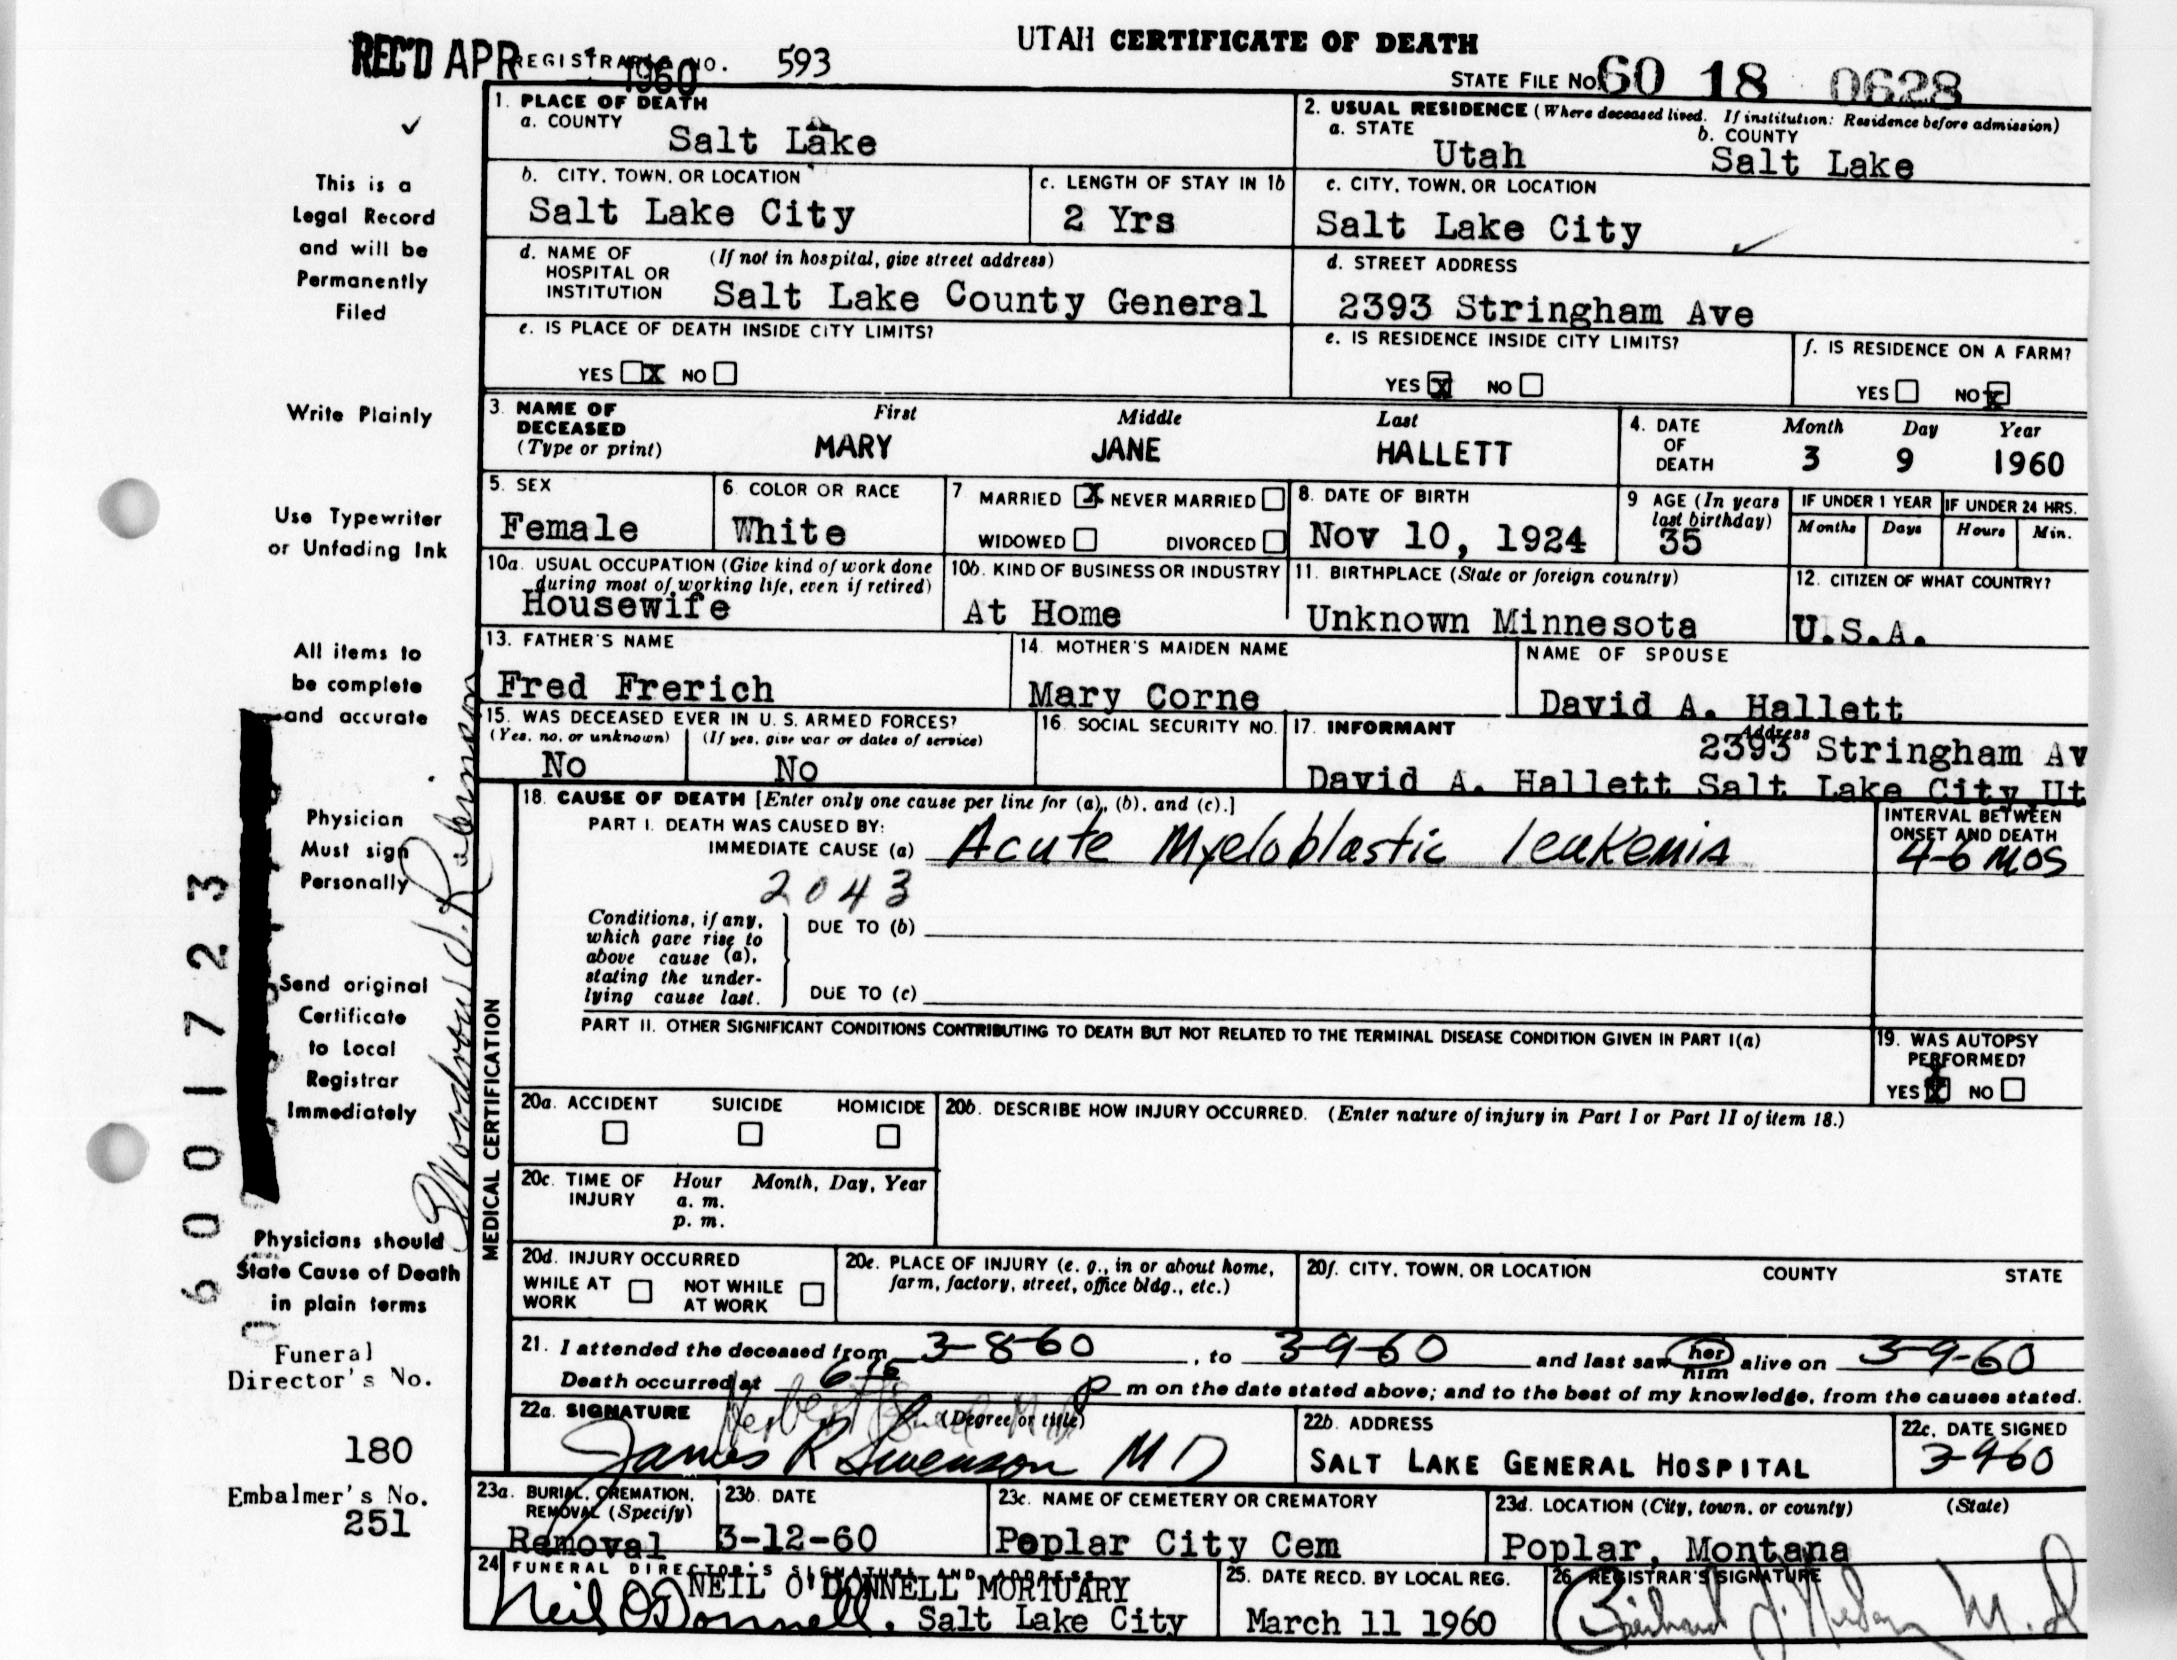 UTAH CERTIFICATE OF DEATH
REC'D APR 1960 REGISTRAR'S NO. 593
STATE FILE NO. 60 18 0628
1. PLACE OF DEATH
a. COUNTY
Salt Lake
2. USUAL RESIDENCE (Where deceased lived. If institution: Residence before admission)
a. STATE b. COUNTY
Utah Salt Lake
b. CITY, TOWN, OR LOCATION
Salt Lake City
c. LENGTH OF STAY IN 1b
2 Yrs
c. CITY, TOWN, OR LOCATION
Salt Lake City
d. NAME OF HOSPITAL OR INSTITUTION (If not in hospital, give street address)
Salt Lake County General
d. STREET ADDRESS
2393 Stringham Ave
e. IS PLACE OF DEATH INSIDE CITY LIMITS?
YES X NO
e. IS RESIDENCE INSIDE CITY LIMITS?
YES X NO
f. IS RESIDENCE ON A FARM?
YES NO X
3. NAME OF DECEASED (Type or print)
First Middle Last
MARY JANE HALLETT
4. DATE OF DEATH
Month Day Year
3 9 1960
5. SEX
Female
6. COLOR OR RACE
White
7 MARRIED X NEVER MARRIED
WIDOWED DIVORCED
8. DATE OF BIRTH
Nov 10, 1924
9 AGE (In years last birthday)
35
IF UNDER 1 YEAR IF UNDER 24 HRS.
Months Days Hours Min.
10a. USUAL OCCUPATION (Give kind of work done during most of working life, even if retired)
Housewife
10b. KIND OF BUSINESS OR INDUSTRY
At Home
11. BIRTHPLACE (State or foreign country)
Unknown Minnesota
12. CITIZEN OF WHAT COUNTRY?
U.S.A.
13. FATHER'S NAME
Fred Frerich
14. MOTHER'S MAIDEN NAME
Mary Corne
NAME OF SPOUSE
David A. Hallett
15. WAS DECEASED EVER IN U. S. ARMED FORCES?
(Yes, no, or unknown) (If yes, give war or dates of service)
No No
16. SOCIAL SECURITY NO.
17. INFORMANT Address
2393 Stringham Av
David A. Hallett Salt Lake City Ut
MEDICAL CERTIFICATION
18. CAUSE OF DEATH [Enter only one cause per line for (a), (b), and (c).]
PART I. DEATH WAS CAUSED BY:
IMMEDIATE CAUSE (a) Acute Myeloblastic leukemia
INTERVAL BETWEEN ONSET AND DEATH
4-6 MOS
2043
Conditions, if any, which gave rise to above cause (a), stating the underlying cause last.
DUE TO (b)
DUE TO (c)
PART II. OTHER SIGNIFICANT CONDITIONS CONTRIBUTING TO DEATH BUT NOT RELATED TO THE TERMINAL DISEASE CONDITION GIVEN IN PART I(a)
19. WAS AUTOPSY PERFORMED?
YES X NO
20a. ACCIDENT SUICIDE HOMICIDE
20b. DESCRIBE HOW INJURY OCCURRED. (Enter nature of injury in Part I or Part II of item 18.)
20c. TIME OF INJURY Hour Month, Day, Year
a. m.
p. m.
20d. INJURY OCCURRED
WHILE AT WORK NOT WHILE AT WORK
20e. PLACE OF INJURY (e. g., in or about home, farm, factory, street, office bldg., etc.)
20f. CITY, TOWN, OR LOCATION COUNTY STATE
21. I attended the deceased from 3-8-60, to 3-9-60 and last saw her him alive on 3-9-60
Death occurred at P m on the date stated above; and to the best of my knowledge, from the causes stated.
22a. SIGNATURE (Degree or title)
James R Swenson MD
22b. ADDRESS
SALT LAKE GENERAL HOSPITAL
22c. DATE SIGNED
23a. BURIAL, CREMATION, REMOVAL (Specify)
Removal
23b. DATE
3-12-60
23c. NAME OF CEMETERY OR CREMATORY
Poplar City Cem
23d. LOCATION (City, town, or county) (State)
Poplar, Montana
24 FUNERAL DIRECTOR'S SIGNATURE AND ADDRESS
NEIL O'DONNELL MORTUARY
Neil O'Donnell. Salt Lake City
25. DATE RECD. BY LOCAL REG.
March 11 1960
26. REGISTRAR'S SIGNATURE
M.D
This is a
Legal Record
and will be
Permanently
Filed
Write Plainly
Use Typewriter
or Unfading Ink
All items to
be complete
and accurate
Physician
Must sign
Personally
Send original
Certificate
to Local
Registrar
Immediately
Physicians should
State Cause of Death
in plain terms
Funeral
Director's No.
180
Embalmer's No.
251
6001723